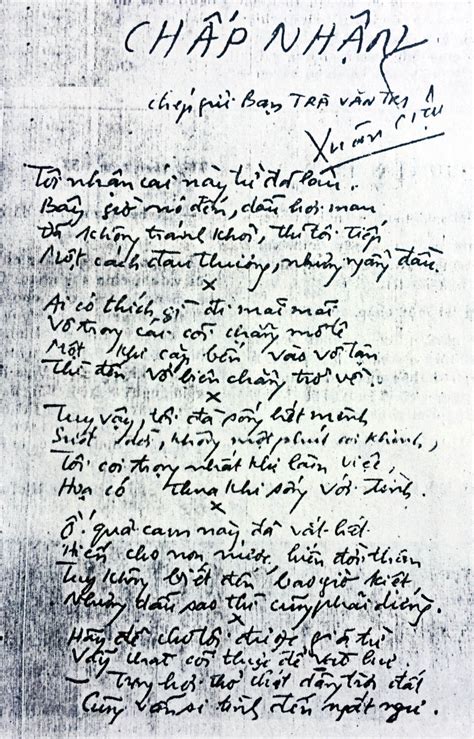 CHẤP NHẬN
chép gửi Bạn TRÀ VĂN
XUÂN DIỆU
Tôi nhận cái này từ đã lâu.
Bây giờ nó đến, dẫu hơi mau
Đã không tránh khỏi, thì tôi tiếp
Một cách đau thương, nhưng ngẩng đầu.
x
Ai có thích gì đi mãi mãi
Vô trong cái cõi chẳng mô
Một khi cập bến vào vô tận
Thì đến vô biên chẳng trở về.
x
Tuy vậy, tôi đã sống hết mình
Suốt đời, không một phút coi khinh,
Tôi coi trọng nhất khi làm việc,
Hoạ có thua khi sống với tình.
x
Ồ! quả cam này đã vắt hết
Hiến cho non nước, hiến đời thêm
Tuy không biết đến bao giờ kiệt,
Nhưng dẫu sao thì cũng phải dừng.
x
Hãy để cho tôi được giã từ
Vẫy chào cõi thực để vào hư
— Trong hơi thở chót dâng trời đất
Cũng vẫn si tình đến ngất ngư.